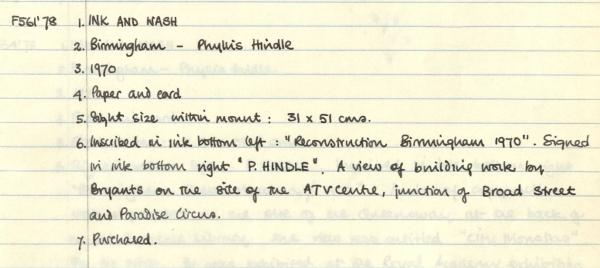 F561'78 1. INK AND WASH
2. Birmingham - Phyllis Hindle
3. 1970
4. Paper and card
5. Sight size within mount : 31 x 51 cms.
6. Inscribed in ink bottom left : "Reconstruction Birmingham 1970". Signed
in ink bottom right "P. HINDLE". A view of building work by
Bryants on the site of the ATV Centre, junction of Broad Street
and Paradise Circus.
7. Purchased.